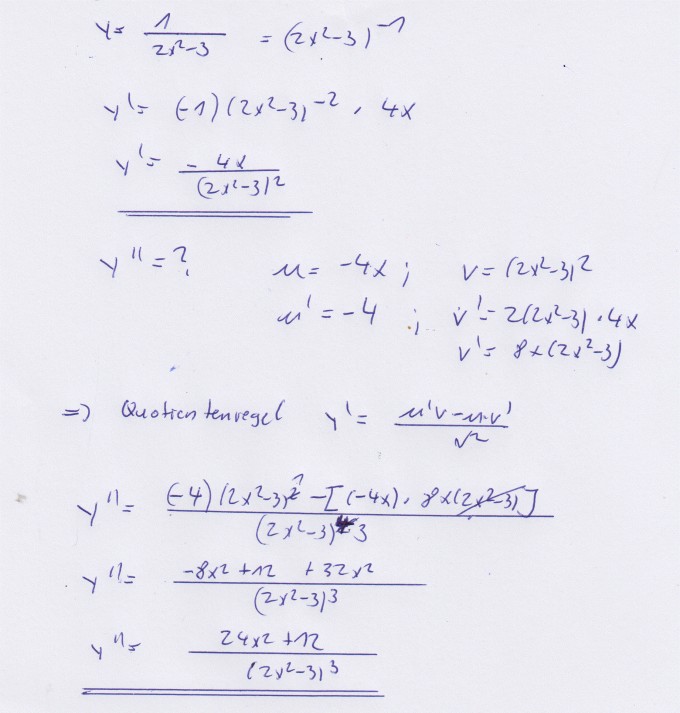 y = 1/(2x²-3) = (2x²-3)⁻¹
y' = (-1)(2x²-3)⁻² · 4x
y' = -4x/(2x²-3)²
y'' = ? u = -4x ; v = (2x²-3)²
u' = -4 ; v' = 2(2x²-3) · 4x
v' = 8x(2x²-3)
=> Quotientenregel y' = (u'v - u·v')/v²
y'' = ((-4)(2x²-3)¹ - [(-4x) · 8x(2x²-3)])/(2x²-3)³
y'' = (-8x² + 12 + 32x²)/(2x²-3)³
y'' = (24x² + 12)/(2x²-3)³